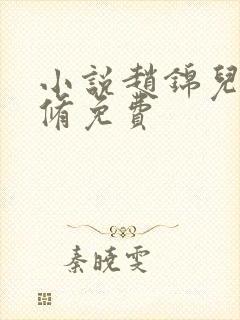 小說趙錦兒
脩免費
秦曉雯